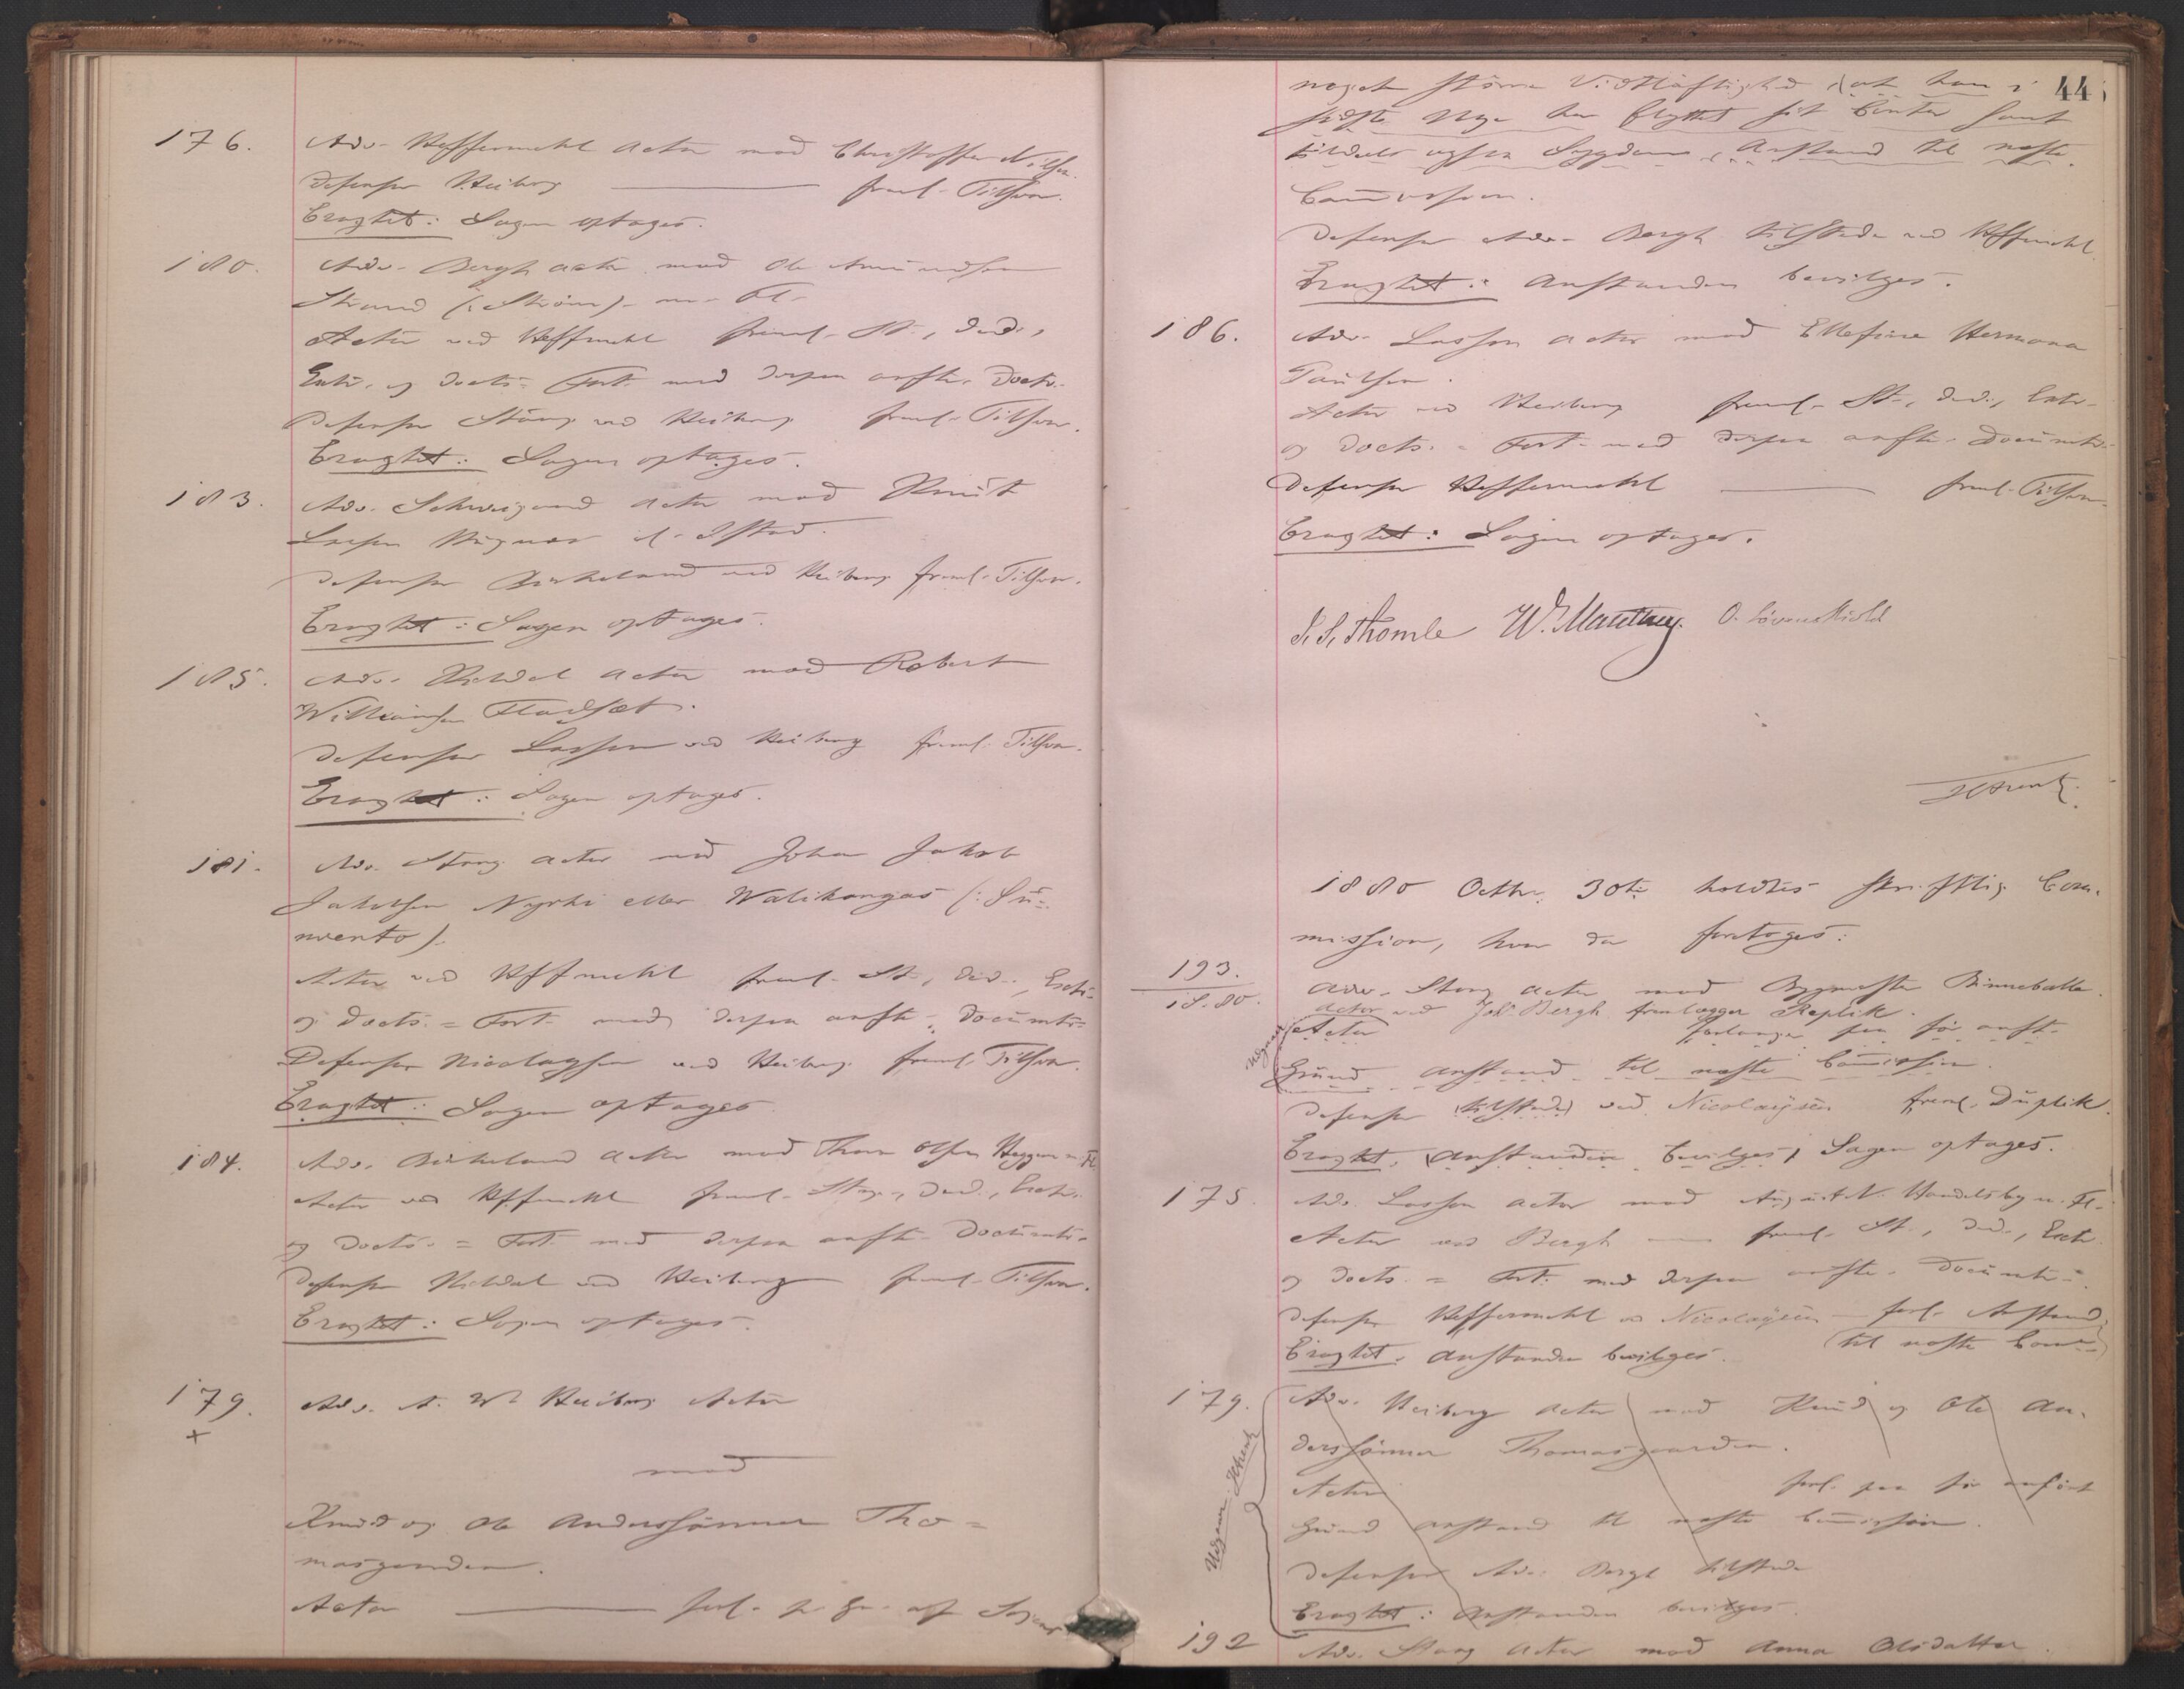 176. Adv. Heffermehl Actor mod Christoffer Nilsen.
Defensor Heiberg — freml. Tilsvar.
Eragtet: Sagen optages.
180. Adv. Bergh Actor mod Ole Amundsen
Strand (: Ström) m. Fl.
Actor ved Heffermehl freml. St., Ded.,
Extr. og Docts. = Fort. med derpaa anft. Doctr.
Defensor Stang ved Heiberg freml. Tilsvar.
Eragtet: Sagen optages.
183. Adv. Schweigaard Actor mod Knut
Larsen
Defensor Birkeland ved Heiberg freml. Tilsvar.
Eragtet: Sagen optages.
185. Adv. Kildal Actor mod Robert
Williamsen Fladsæt.
Defensor Lasson ved Heiberg freml. Tilsvar.
Eragtet: Sagen optages.
181. Adv. Stang Actor mod Johan Jakob
Jakobsen Nyrhi eller Walikangas (: Su-
nvento).
Actor ved Heffermehl freml. St., Ded., Extr.
og Docts. = Fort. med derpaa anft. Documtr.
Defensor Nicolaysen ved Heiberg freml. Tilsvar.
Eragtet: Sagen optages
184. Adv. Birkeland Actor mod Thore Olsen Heggen m. Fl.
Actor ved Heffermehl freml. Stvn., Ded., Extr.
og Docts. = Fort. med derpaa anft. Documtr.
Defensor Kildal ved Heiberg freml. Tilsvar.
Eragtet: Sagen optages.
179. Adv. A. W. Heiberg Actor
+
mod
Knud og Ole Anderssönner Tho=
masgaarden.
Actor — forl. p. Gr. af Sagens
44
noget större Vidtløftighed (at han i
sidste Uge har flyttet sit Contor samt
tildels ogsaa Sygdom, Anstand til næste
Commission.
Defensor Adv. Bergh tilstede ved Heffermehl
Eragtet: Anstanden bevilges.
186. Adv. Lasson Actor mod Ellefine Hermana
Paulsen.
Actor ved Heiberg freml. St., Ded., Extr.
og Docts. = Fort. med derpaa anft. Documtr.
Defensor Heffermehl — freml. Tilsvar.
Eragtet: Sagen optages.
I. S. Thomle W. Manthey. O. Løvenskiold
1880 Octbr. 30te holdtes skriftlig Com-
mission, hvor da foretoges:
193.
18.80. Adv. Stang Actor mod Bygmester Binneballe.
Actor ved Joh. Bergh fremlægger Replik.
Udgaar (Actor forlanger paa før anft.
Grund Anstand til næste Commission.
Defensor (tilstede) ved Nicolaysen freml. Duplik.
Eragtet. (Anstanden bevilges) Sagen optages.
175. Adv. Lasson Actor mod August N. Handelsby m. Fl.
Actor ved Bergh — freml. St., Ded., Extr.
og Docts. = Fort. med derpaa anft. Documtr.
Defensor Heffermehl v. Nicolaysen — forl. Anstand
Eragtet. Anstanden bevilges. (til næste Comm.)
179. Adv. Heiberg Actor mod Knud og Ole An-
derssönner Thomasgaarden.
Actor forl. paa før anført
Grund Anstand til næste Commission.
Defensor Adv. Bergh tilstede
Eragtet: Anstanden bevilges.
Udgaar
192 Adv. Stang Actor mod Anna Olsdatter.